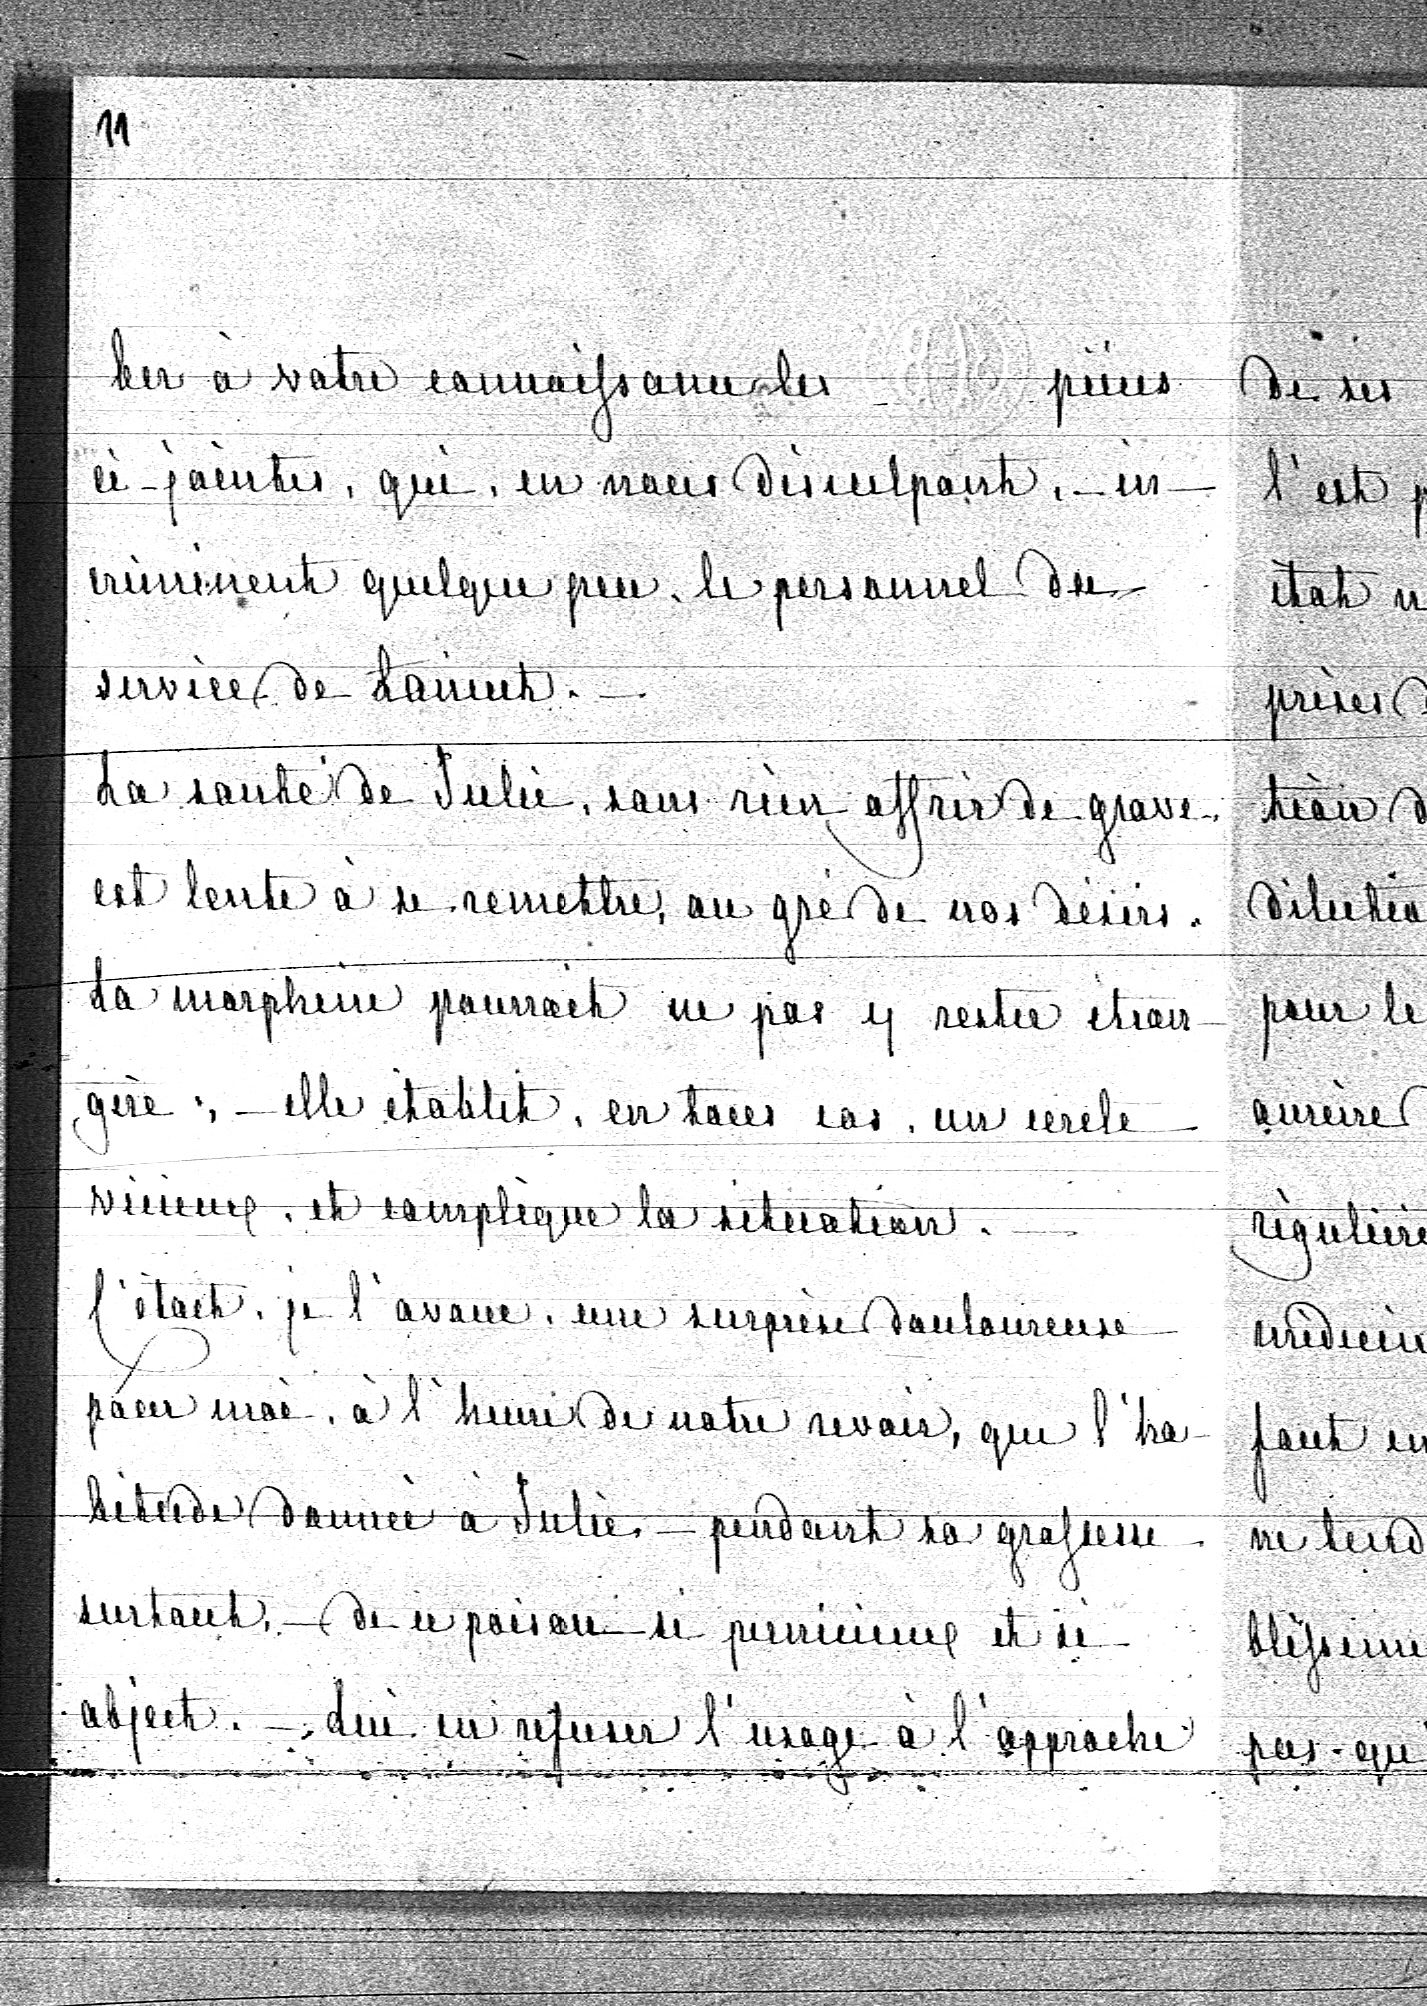 11
ber à votre connaissance les pièces
ci-jointes, qui, en nous disculpant, - in-
criminent quelque peu, le personnel du
service de
La santé de Julie, sans rien offrir de grave,
est lente à se remettre, au gré de nos désirs.
La morphine pourrait ne pas y rester étran-
gère ; - elle établit, en tous cas, un cercle
vicieux, et complique la situation. -
C'était, je l'avoue, une surprise douloureuse
pour moi, à l'heure de notre revoir, que l'ha-
bitude donnée à Julie, - pendant sa grossesse
surtout, - de ce poison si pernicieux et si
abject. - Lui en refuser l'usage à l'approche
de ses
l'est
état
prises
tion
dilution
pour le

régulière
médecin
faut en
ne

pas qu'